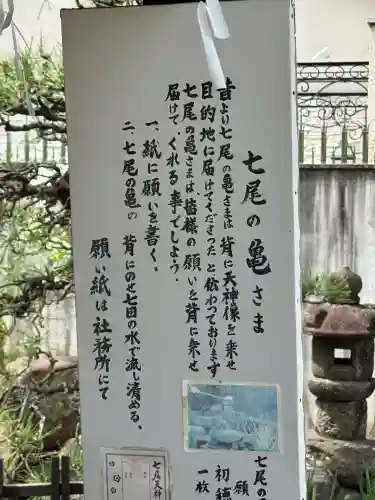 七尾の亀さま
昔より七尾の亀さまは背に天神像を乗せ
目的地に届けてくださったと伝わっております
七尾の亀さまは、皆様の願いを背に乗せ
届けて、くれる事でしょう。
一、紙に願いを書く。
二、七尾の亀の背にのせ七回の水で流し清める。
願い紙は社務所にて
七尾の
願
初穂
一枚
七天神